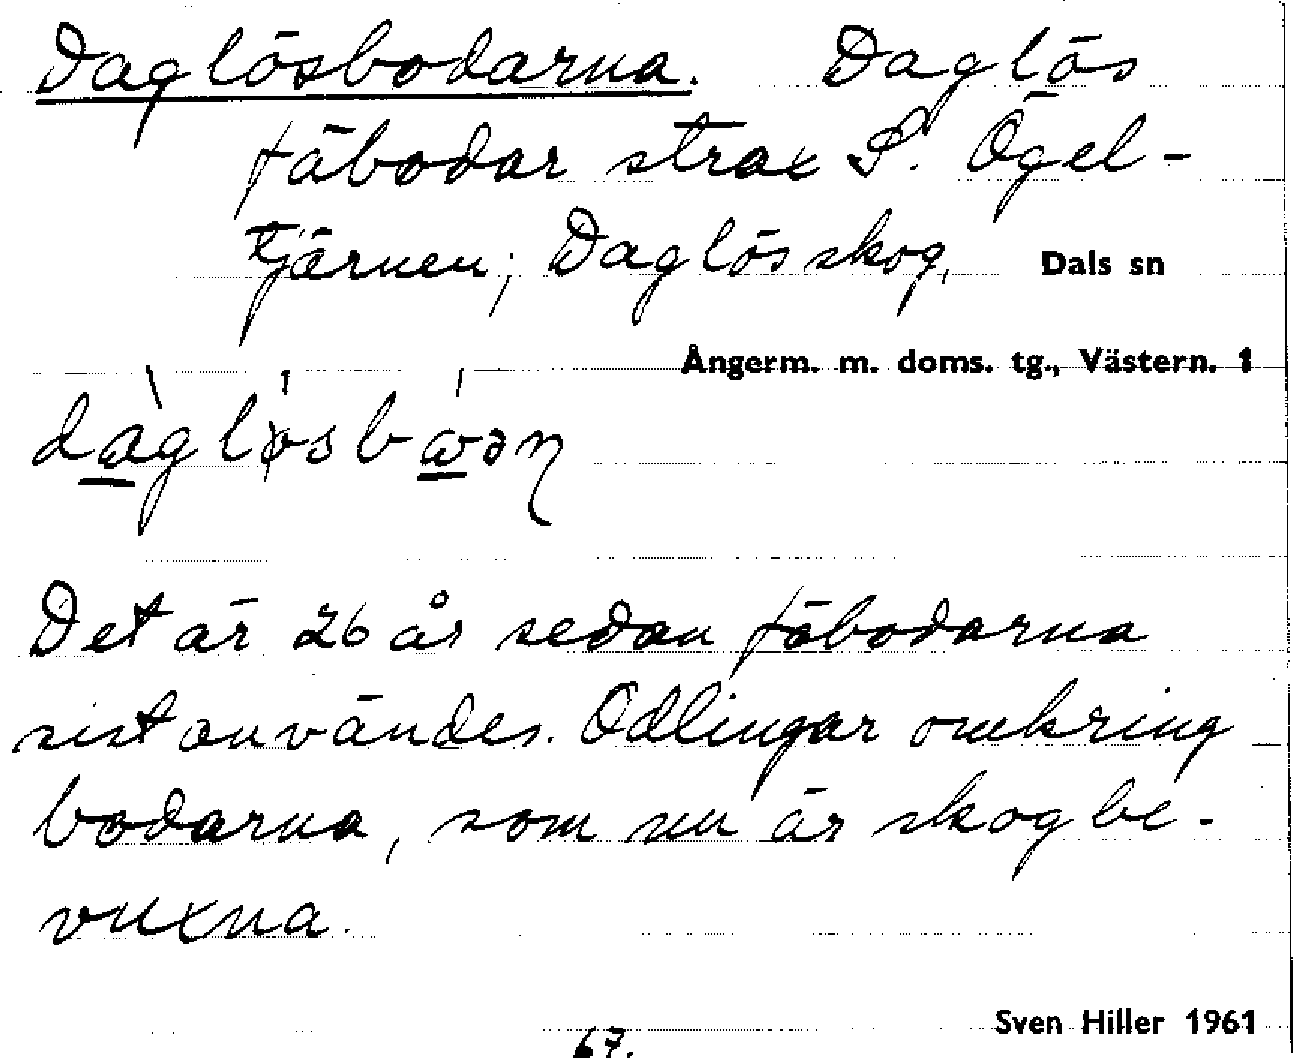 Daglösbodarna. Daglös
fäbodar strax S. Ögel-
tjärnen; Daglösskog,
Dals sn
Ångerm. m. doms. tg., Västern. 1
Det är 26 år sedan fäbodarna
sist användes. Odlingar omkring
bodarna, som nu är skogbe-
vuxna.
Sven Hiller 1961
67.